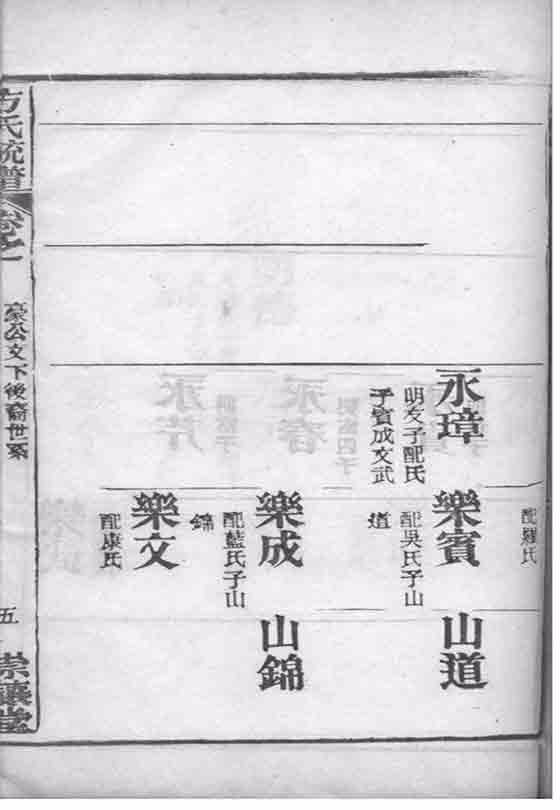 配羅氏
永璋
明友子配氏
子賓成文武
樂賓
配吳氏子山
道
山道
樂成
配藍氏子山
錦
山錦
樂文
配康氏
方氏統譜
卷之一
豪公文下後裔世系
五
崇讓堂